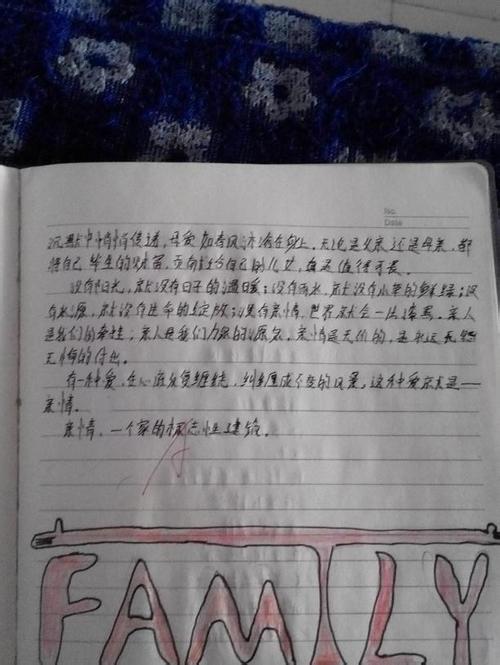 No.
Date
沉默中悄悄传递,母爱如春风沐浴在身上,无论是父亲还是母亲,都
将自己毕生的财富,贡献给自己的儿女,
没有阳光,就没有日子的温暖;没有雨水,就没有小草的鲜绿;没
有水源,就没有生命的绽放;没有亲情,世界就会一片漆黑。亲人
是我们的牵挂;亲人是我们力量的源泉,亲情是无价的,是永远
无悔的付出。
有一种爱,在心底反复缠绕,纠缠成不变的风景,这种爱就是——
亲情。
亲情,一个家的标志性建筑。
FAMILY